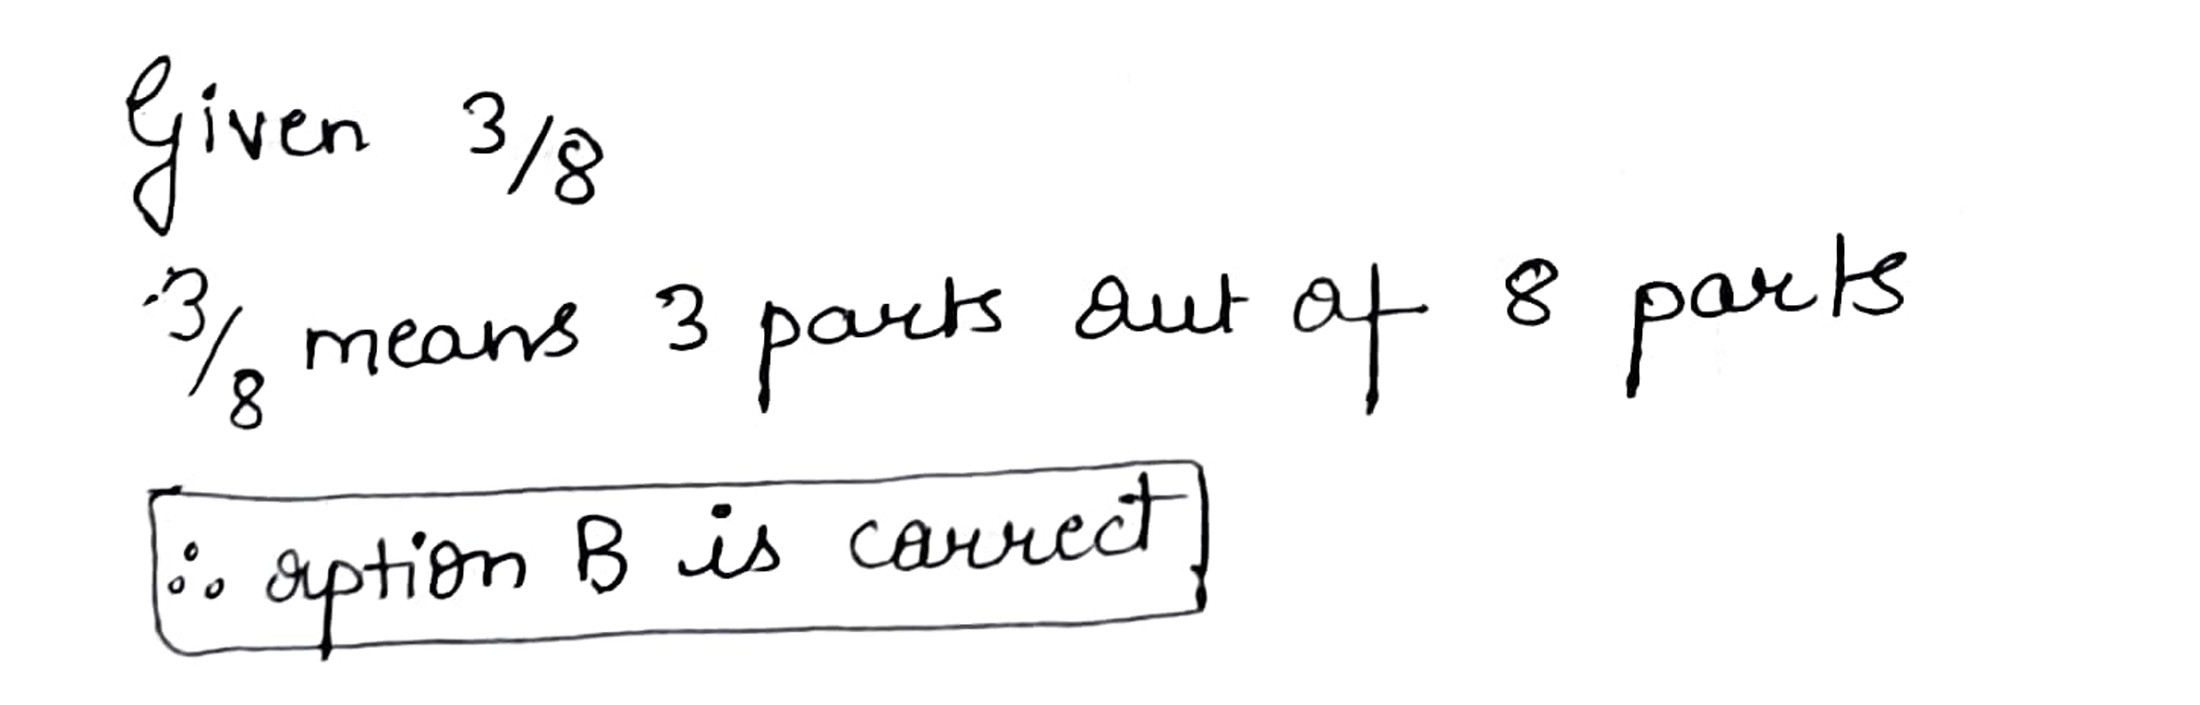 Given 3/8
3/8 means 3 parts out of 8 parts
∴ option B is correct